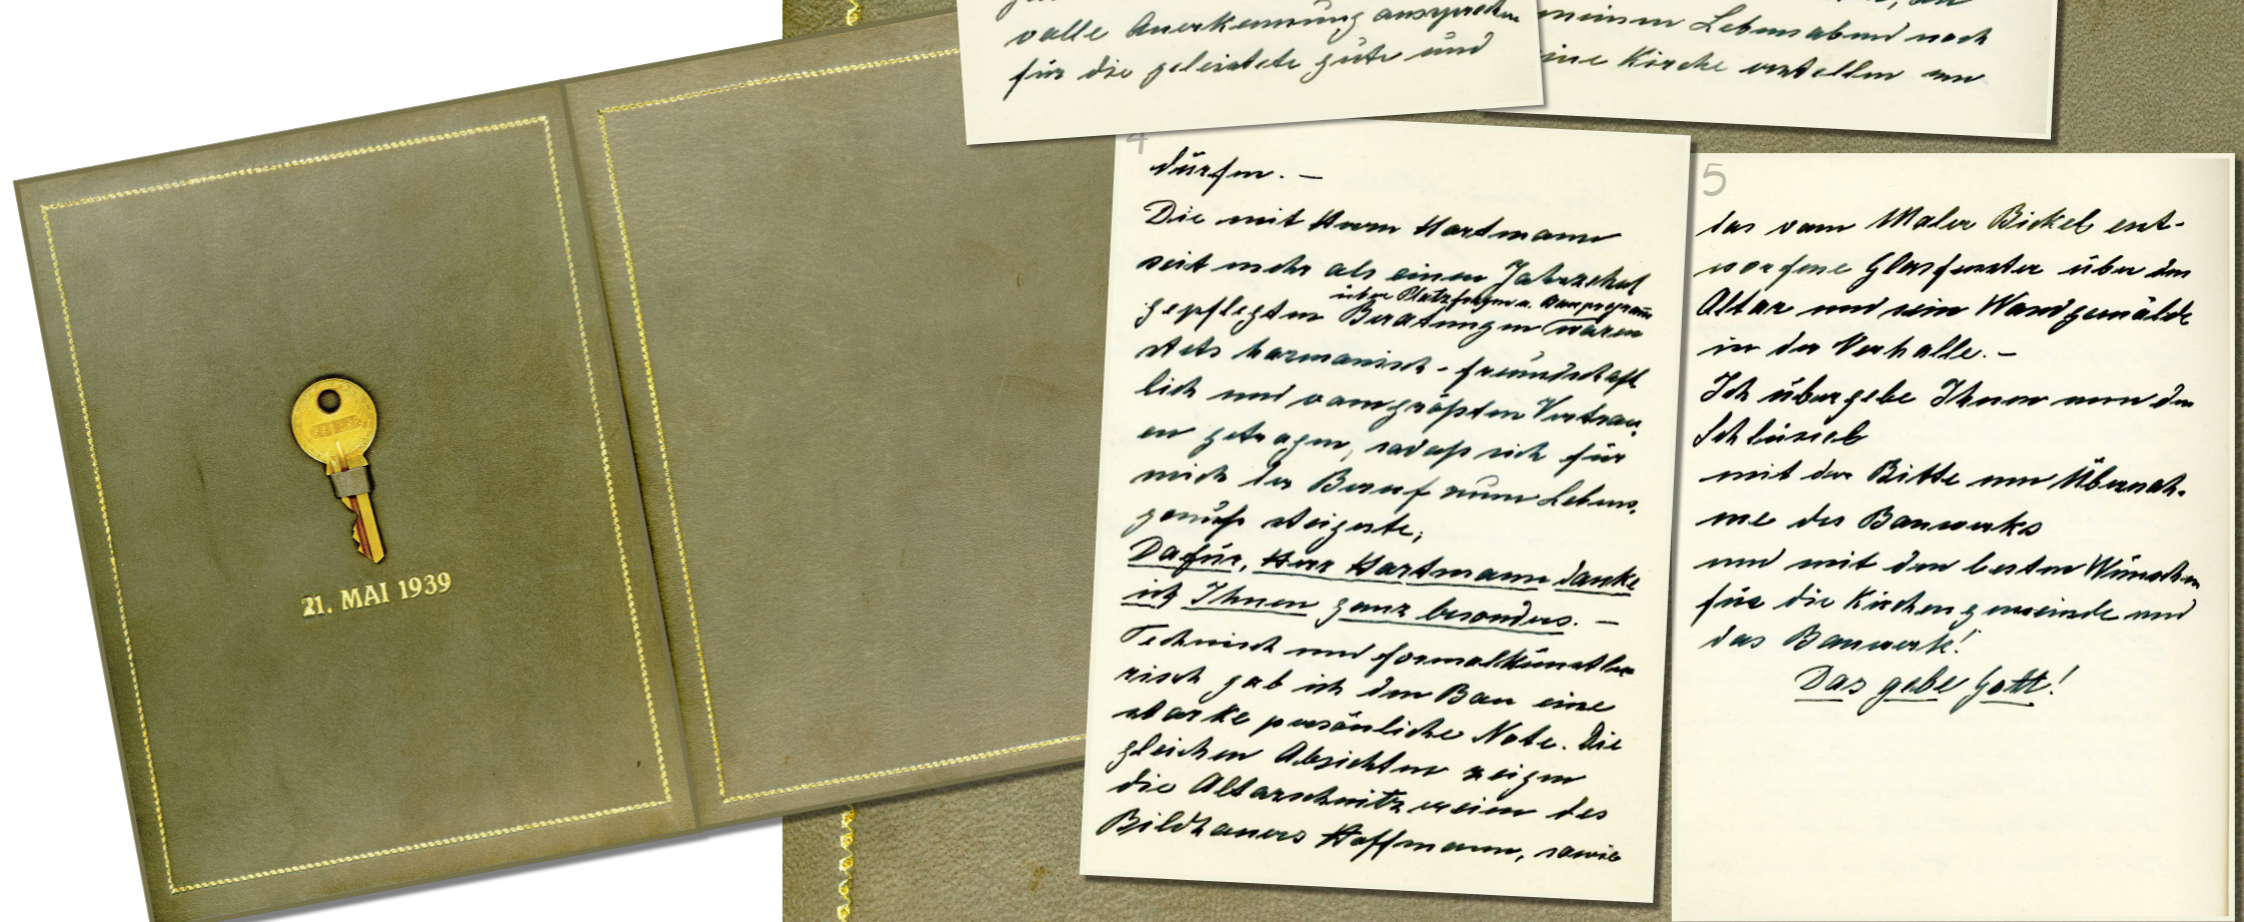 volle Anerkennung aussprechen
für die geleistete gute und
meinem Lebensabend noch
eine Kirche erstellen zu
21. MAI 1939
4
dürfen. –
Die mit Herrn Hartmann
seit mehr als einem Jahrzehnt
über Platzfragen u. Bauprogramm
gepflegten Beratungen waren
stets harmonisch-freundschaft
lich und vom größten Vertrau-
en getragen, sodaß sich für
mich der Beruf zum Lebens-
genuß steigerte;
Dafür, Herr Hartmann danke
ich Ihnen ganz besonders. –
Technisch und formalkünstle
risch gab ich dem Bau eine
starke persönliche Note. Die
gleichen Absichten zeigen
die Altarschnitzereien des
Bildhauers Hoffmann, sowie
5
das vom Maler Bickel ent-
worfene Glasfenster über dem
Altar und sein Wandgemälde
in der Vorhalle. –
Ich übergebe Ihnen nun den
Schlüssel
mit der Bitte um Übernah-
me des Bauwerks
und mit den besten Wünschen
für die Kirchengemeinde und
das Bauwerk!
Das gebe Gott!